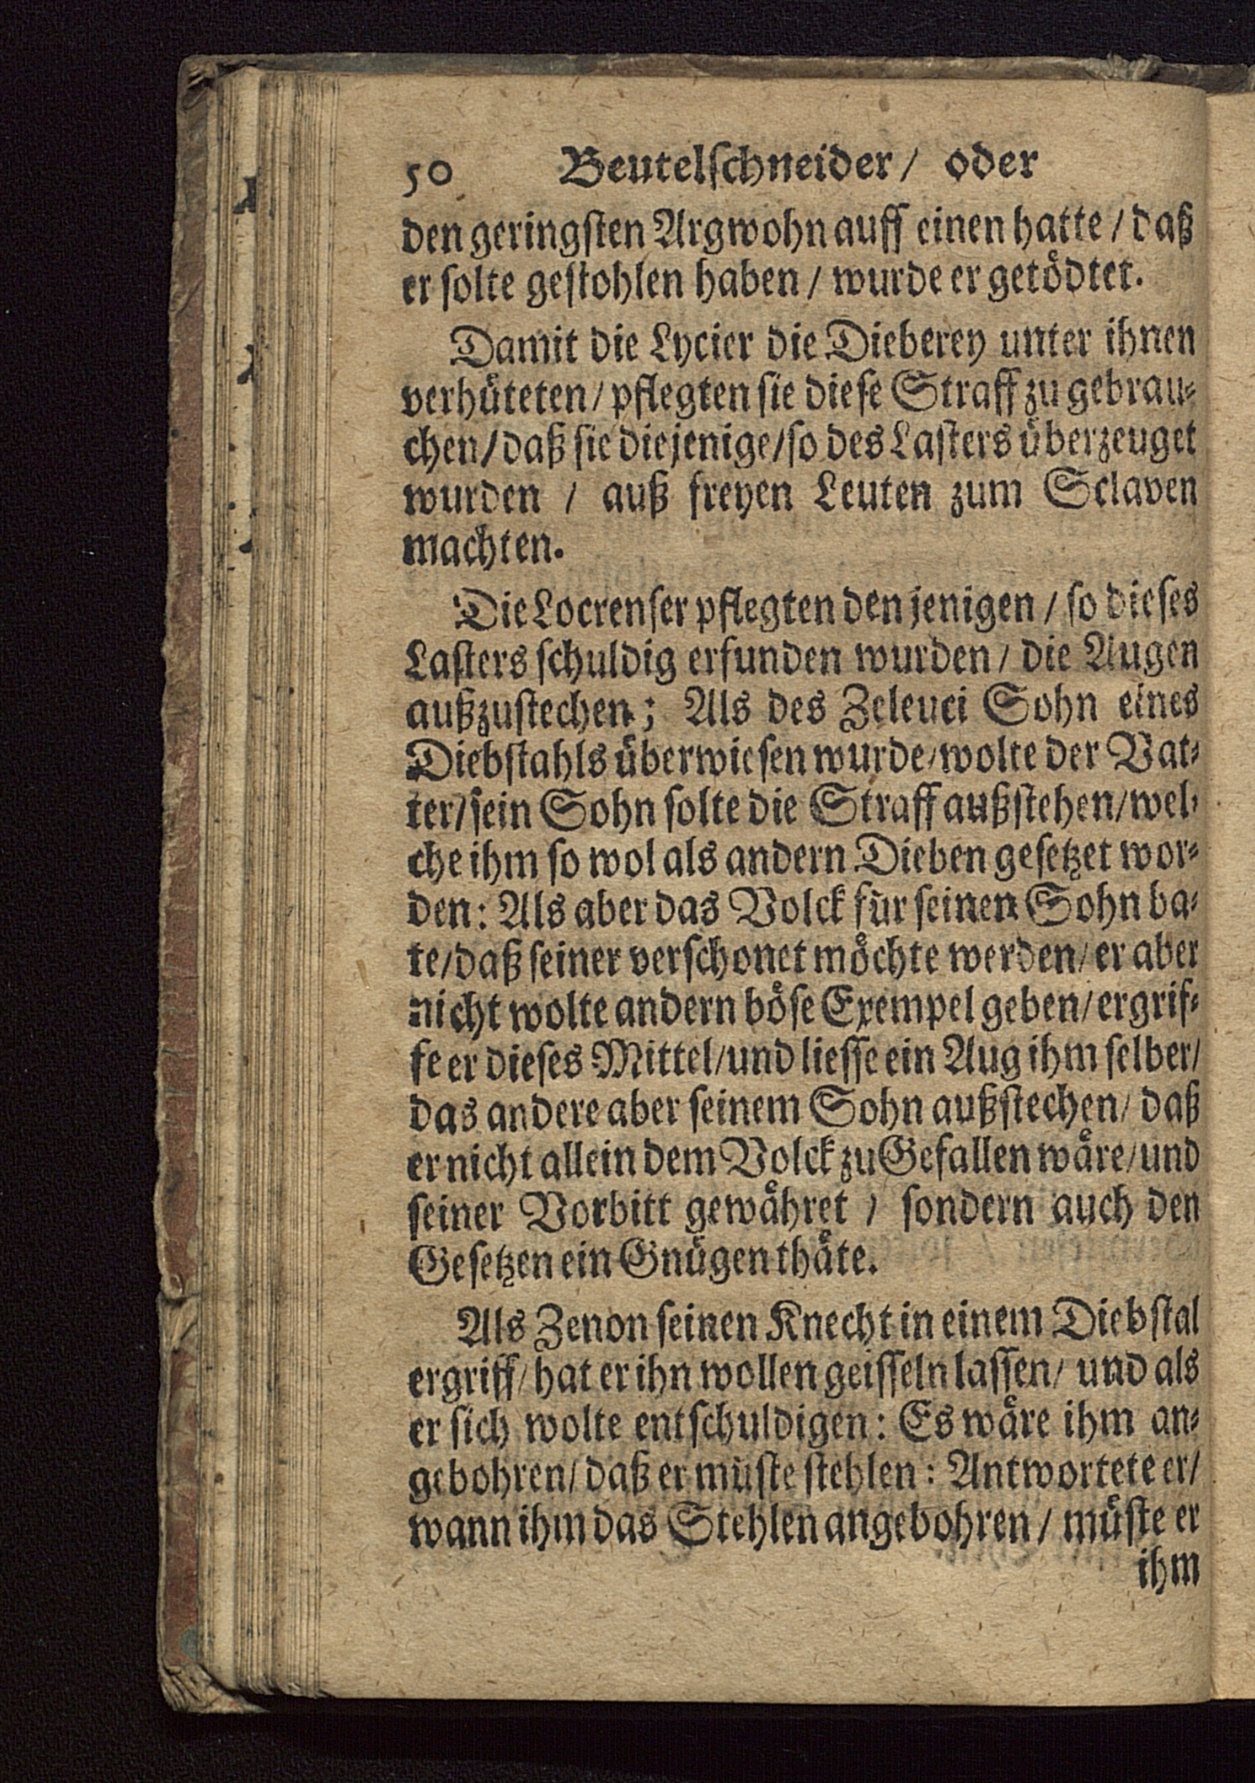 50 Beutelschneider / oder
den geringsten Argwohn auff einen hatte / daß
er solte gestohlen haben / wurde er getödtet.
Damit die Lycier die Dieberey unter ihnen
verhüteten / pflegten sie diese Straff zu gebrau-
chen / daß sie diejenige / so des Lasters überzeuget
wurden / auß freyen Leuten zum Sclaven
machten.
Die Locrenser pflegten den jenigen / so dieses
Lasters schuldig erfunden wurden / die Augen
außzustechen; Als des Zeleuci Sohn eines
Diebstahls überwiesen wurde / wolte der Vat-
ter / sein Sohn solte die Straff außstehen / wel-
che ihm so wol als andern Dieben gesetzet wor-
den: Als aber das Volck für seinen Sohn ba-
te / daß seiner verschonet möchte werden / er aber
nicht wolte andern böse Exempel geben / ergrif-
fe er dieses Mittel / und liesse ein Aug ihm selber /
das andere aber seinem Sohn außstechen / daß
er nicht allein dem Volck zu Gefallen wäre / und
seiner Vorbitt gewähret / sondern auch den
Gesetzen ein Gnügen thäte.
Als Zenon seinen Knecht in einem Diebstal
ergriff / hat er ihn wollen geisseln lassen / und als
er sich wolte entschuldigen: Es wäre ihm an-
gebohren / daß er müste stehlen: Antwortete er /
wann ihm das Stehlen angebohren / müste er
ihm